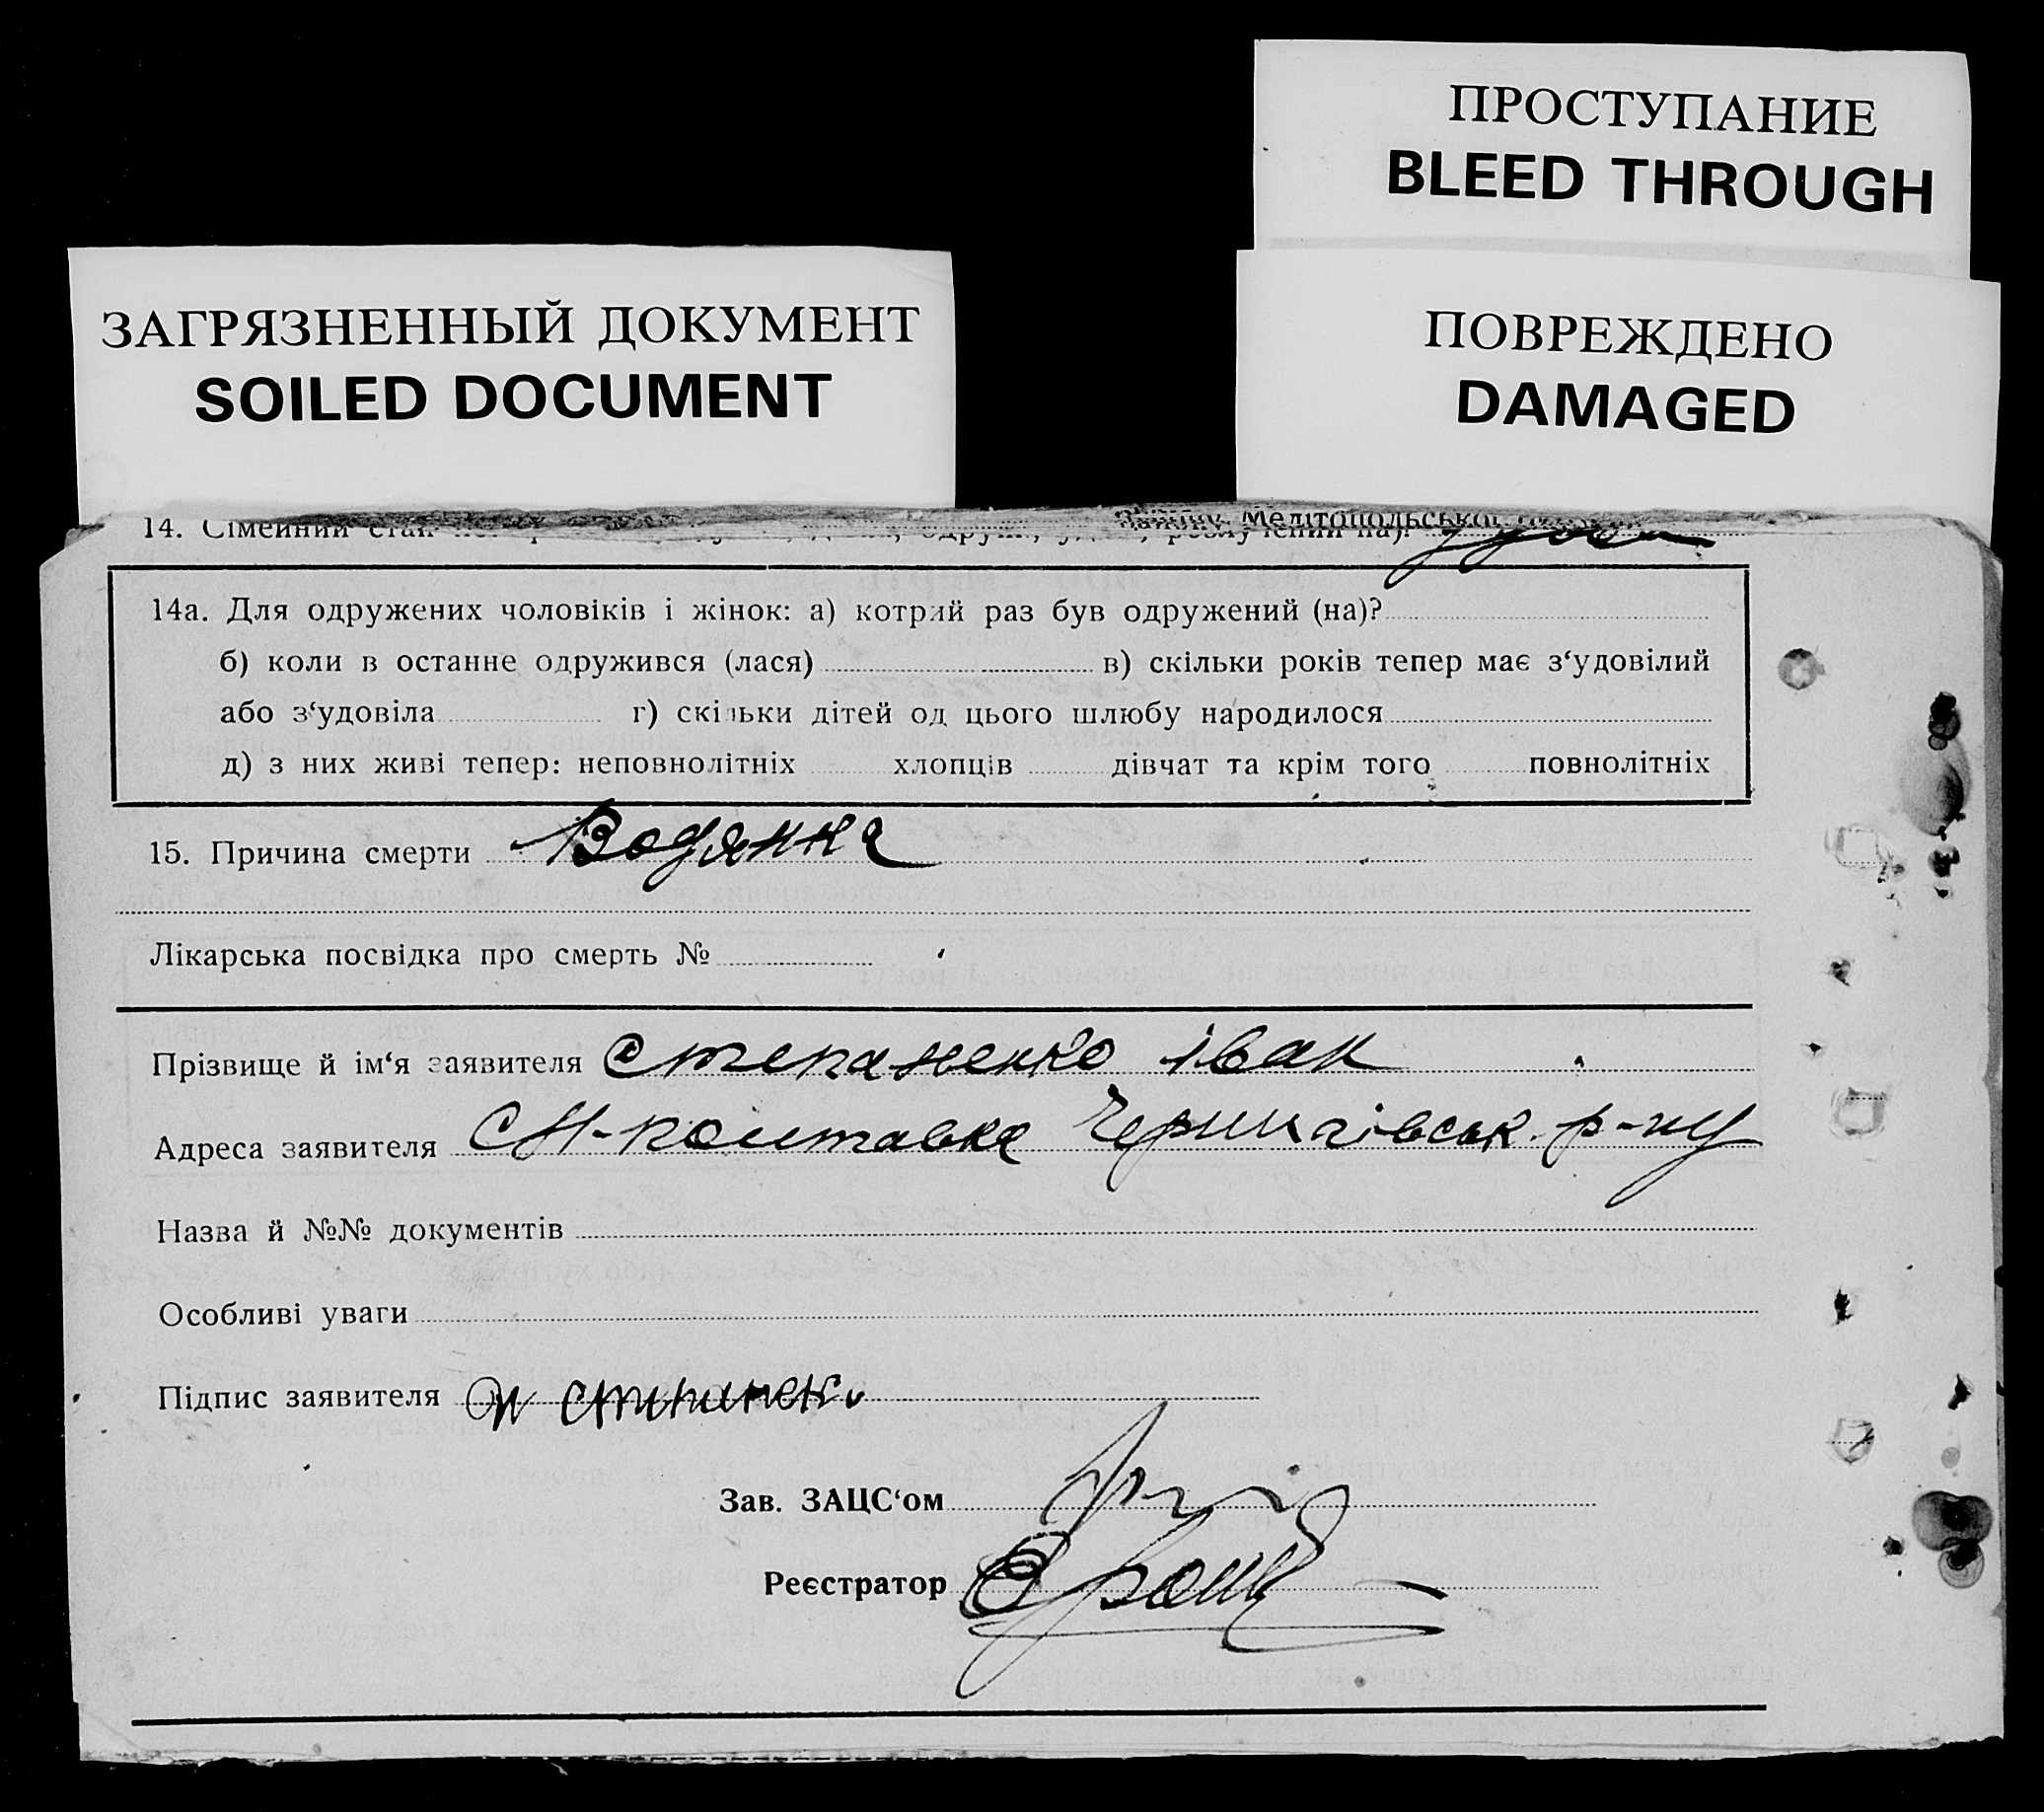 ПРОСТУПАНИЕ
BLEED THROUGH
ЗАГРЯЗНЕННЫЙ ДОКУМЕНТ
SOILED DOCUMENT
ПОВРЕЖДЕНО
DAMAGED
Мелітопольської
14. Сімейний стан
14а. Для одружених чоловіків і жінок: а) котрий раз був одружений (на)?
б) коли в останнє одружився (лася) в) скільки років тепер має з‘удовілий
або з‘удовіла г) скільки дітей од цього шлюбу народилося
д) з них живі тепер: неповнолітніх хлопців дівчат та крім того повнолітніх
15. Причина смерти Водянка
Лікарська посвідка про смерть №
Прізвище й ім‘я заявителя Степаненко Іван
Адреса заявителя р-ну
Назва й №№ документів
Особливі уваги
Підпис заявителя
Зав. ЗАЦС‘ом
Реєстратор